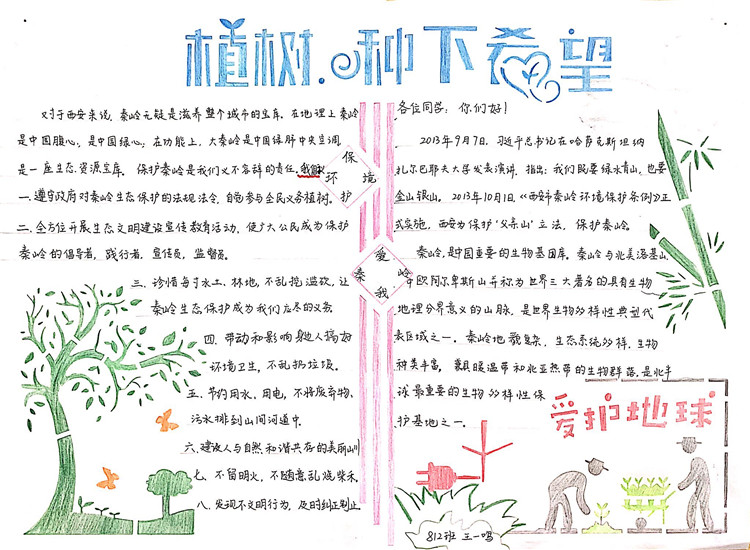 植树.种下希望
对于西安来说,秦岭无疑是滋养整个城市的宝库.在地理上秦岭
是中国腹心;是中国绿心;在功能上,大秦岭是中国绿肺中央空调
是一座生态资源宝库.保护秦岭是我们义不容辞的责任.我们
一.遵守政府对秦岭生态保护的法规法令.自觉参与全民义务植树.护
二.全方位开展生态文明建设宣传教育活动,使广大公民成为保护
秦岭的倡导者,践行者,宣传员,监督员.
三.珍惜每寸水土、林地,不乱挖滥砍,让
秦岭生态保护成为我们应尽的义务
四.带动和影响他人搞好
环境卫生,不乱扔垃圾.
五.节约用水、用电,不将废弃物、
污水排到山间河道中.
六.建设人与自然和谐共存的美丽山川
七.不留明火,不随意乱烧柴禾.
八.发现不文明行为,及时纠正制止
保
环境
护
爱
秦岭
我
各位同学:你们好!
2013年9月7日,习近平总书记在哈萨克斯坦纳
扎尔巴耶夫大学发表演讲,指出:我们既要绿水青山,也要
金山银山.2013年10月1日《西安市秦岭环境保护条例》正
式实施,西安为保护"父亲山"立法,保护秦岭.
秦岭,是中国重要的生物基因库.秦岭与北美洛基山
中欧阿尔卑斯山并称为世界三大著名的具有生物
地理分界意义的山脉,是世界生物多样性典型代
表区域之一.秦岭地貌复杂,生态系统多样,生物
种类丰富,兼具暖温带和北亚热带的生物群落,是北半
球最重要的生物多样性保
护基地之一.
爱护地球
812班 王一鸣